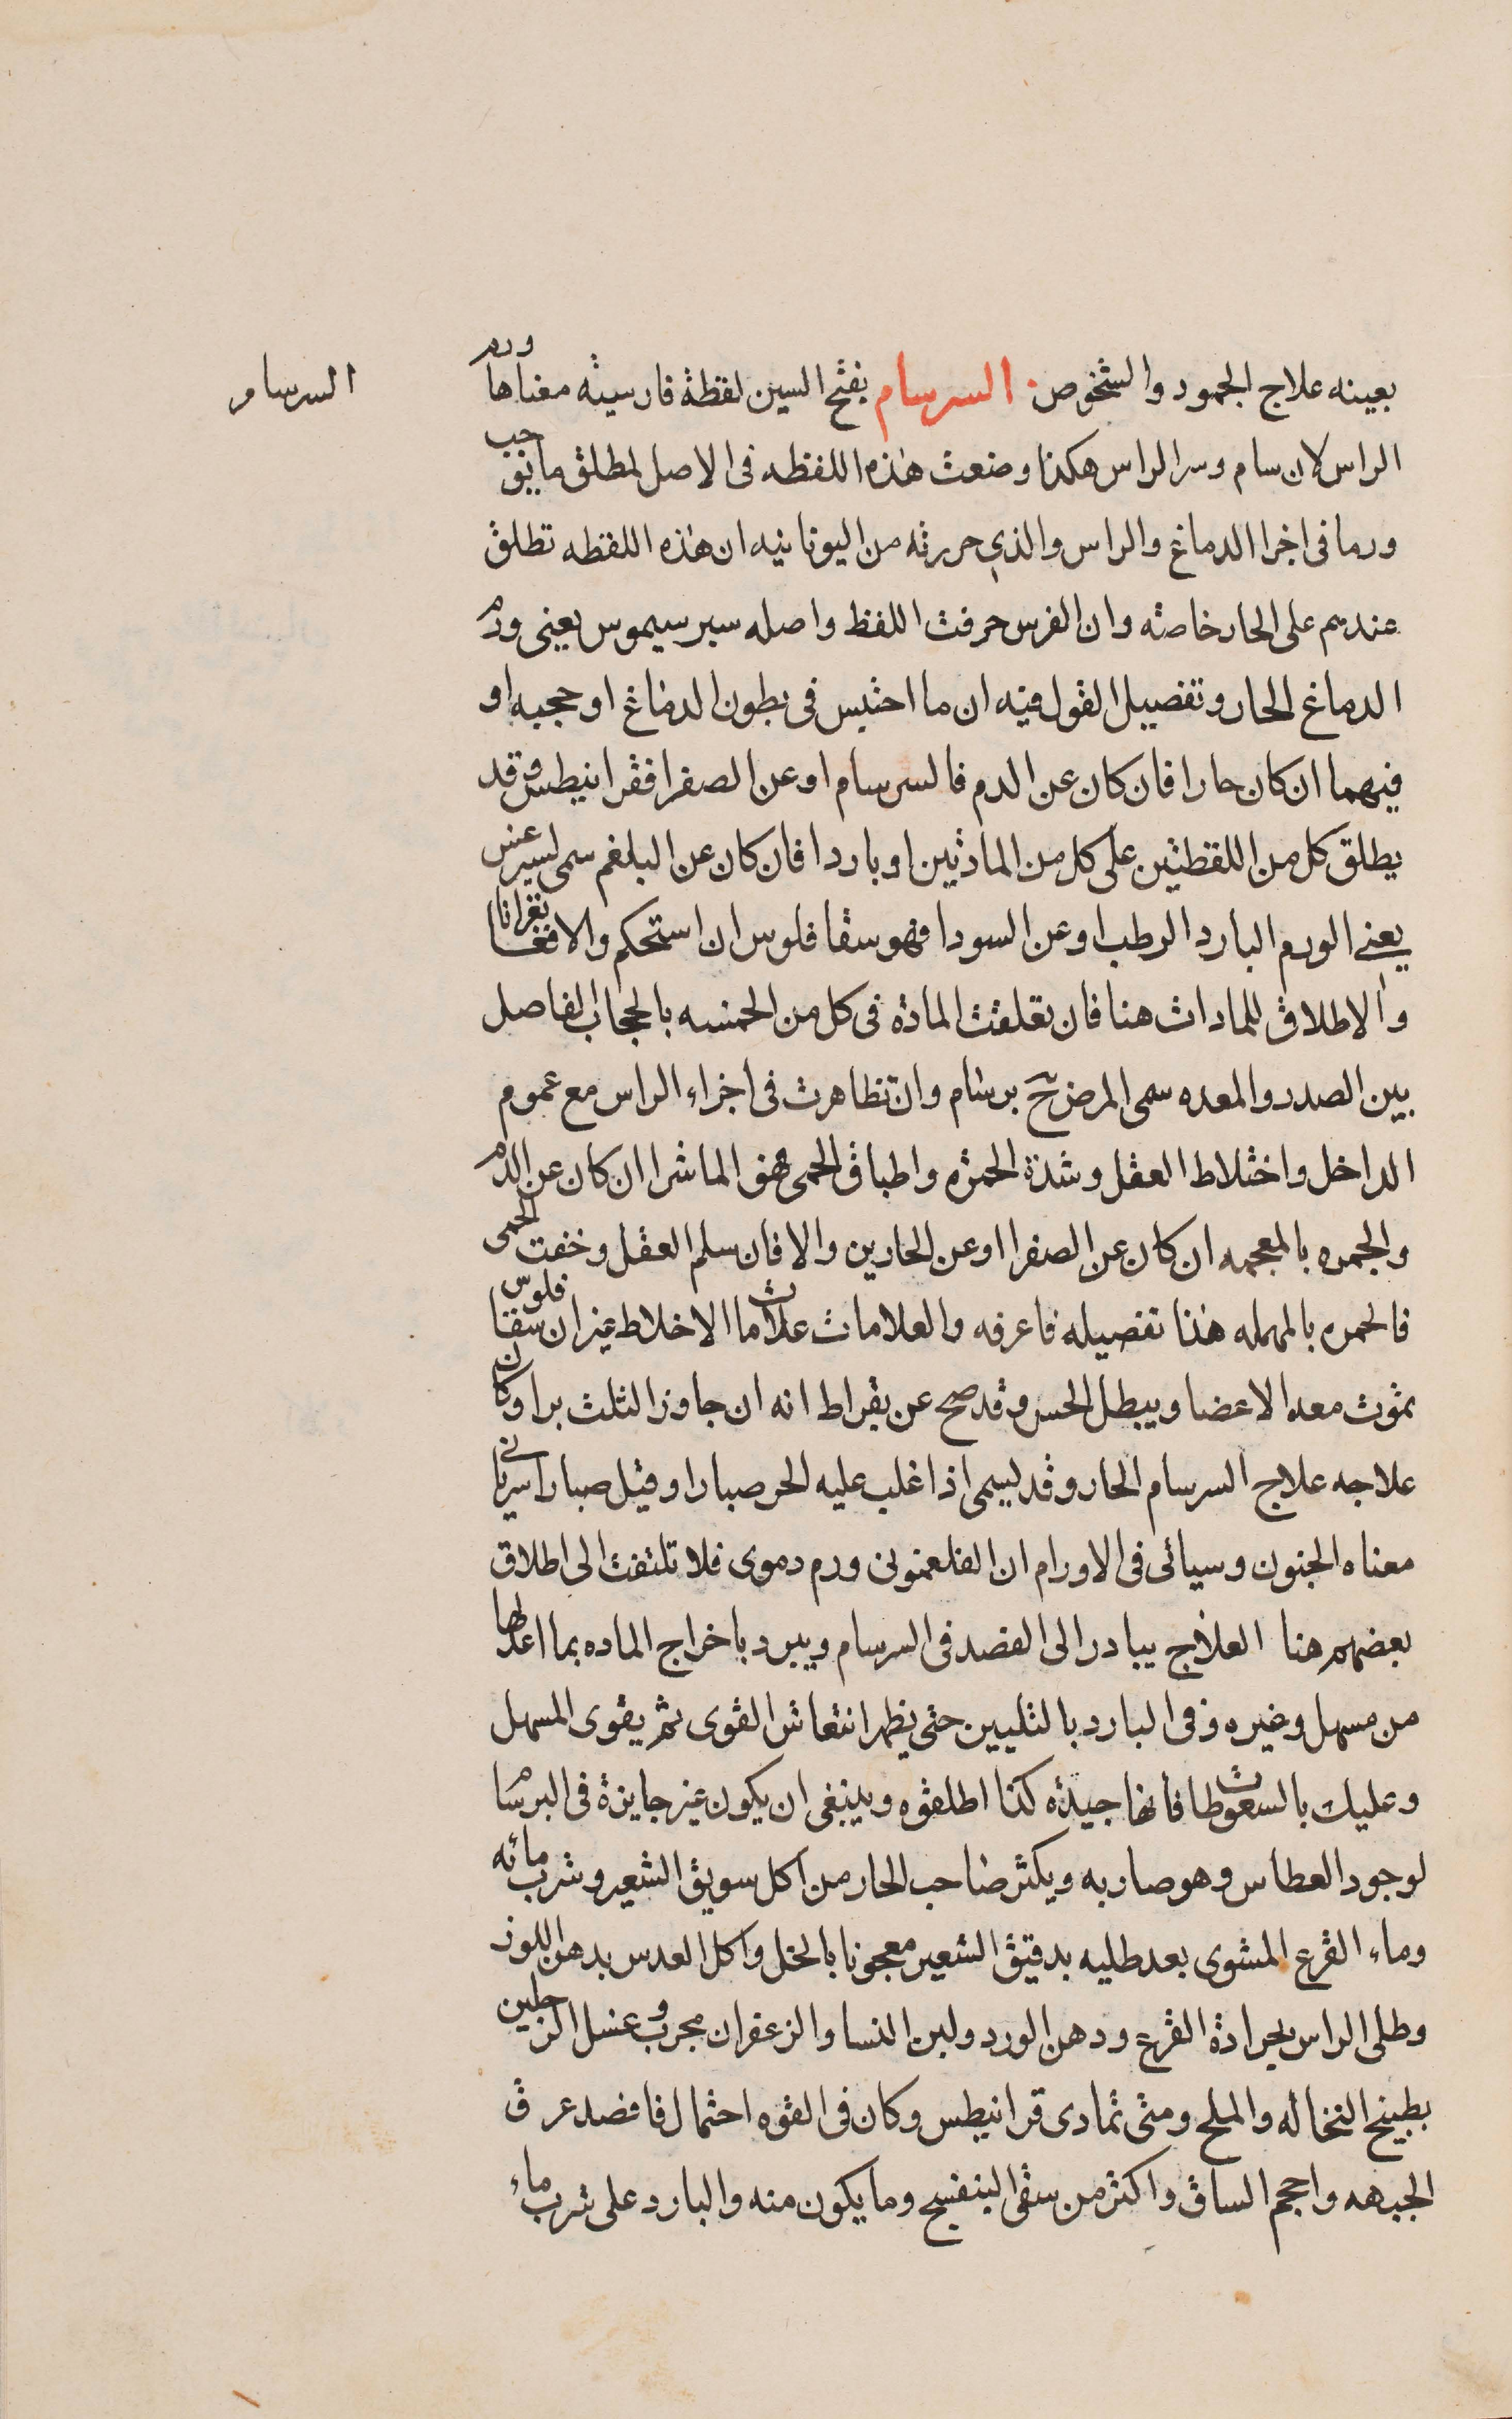 السرسام
بعينه علاج الجمود والشخوص. السرسام بفتح السين لفظة فارسيته معناها ورم
الراس لان سام وسر الراس هكذا وضعت هذه اللفظه فى الاصل لمطلق ما يوجب
ورما فى اجزا الدماغ والراس والذي حررته من اليونانيه ان هذه اللفظه تطلق
عندهم على الحار خاصته وان الفرس حرفت اللفظ واصله سبر سيموس يعنى ورم
الدماغ الحار وتفصيل القول فيه ان ما احتبس فى بطون الدماغ او حجبه او
فيهما ان كان حارا فان كان عن الدم فالسرسام او عن الصفرا فقرانيطس وقد
يطلق كل من اللفظتين على كل من المادتين او باردا فان كان عن البلغم سمى ليبرغس
يعنى الورم البارد الرطب او عن السودا فهو سقاقلوس ان استحكم والا فغانغرانا
والاطلاق للمادات هنا فان تعلقت المادة فى كل من الخمسه بالحجاب الفاصل
بين الصدر والمعده سمى المرض ح برسام وان تظاهرت فى اجزاء الراس مع عموم
الداخل واختلاط العقل وشدة الحمرة واطباق الحمى فهو الماشرا ان كان عن الدم
والجمره بالمعجمه ان كان عن الصفرا او عن الحارين والا فان سلم العقل وخفت الحمى
فالحمره بالمهمله هذا تفصيله فاعرفه والعلامات علامات الاخلاط غير ان سقاقلوس
تموت معه الاعضا ويبطل الحس وقد صح عن بقراط انه ان جاوز الثلث برا وكان
علاجه علاج السرسام الحار وقد يسمى اذا غلب عليه الحر صبارا وقيل صبارا سريانى
معناه الجنون وسياتى فى الاورام ان الفلغمونى ورم دموى فلا تلتفت الى اطلاق
بعضهم هنا العلاج يبادر الى الفصد فى السرسام ويبرد باخراج الماده بما اعد لها
من مسهل وغيره وفى البارد بالتليين حتى يظهر انتعاش القوى ثم يقوى المسهل
وعليك بالسعوطات فانها جيدة كذا اطلقوه وينبغى ان يكون غير جايزة فى البرسام
لوجود العطاس وهو صار به ويكثر صاحب الحار من اكل سويق الشعير وشرب مائه
وماء القرع المشوى بعد طليه بدقيق الشعير معجونا بالخل واكل العدس بدهن اللوز
وطلى الراس بجرادة القرع ودهن الورد ولبن النسا والزعفران مجرب وغسل الرجلين
بطبيخ النخاله والملح ومتى تمادى قرانيطس وكان فى القوه احتمال فافصد عرق
الجبهه واحجم الساق واكثر من سقى البنفسج وما يكون منه والبارد على شرب ماء